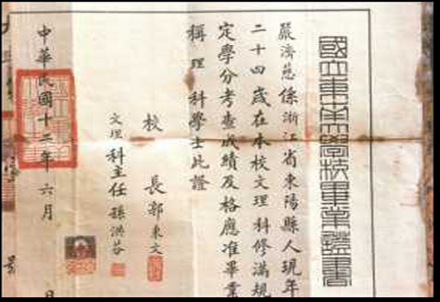 國立東南大學校畢業證書
嚴濟慈係浙江省東陽縣人現年
二十四歲在本校文理科修滿規
定學分考查成績及格應准畢業
稱理科學士此證
校長郭秉文
文理科主任孫洪芬
中華民國十二年六月 日